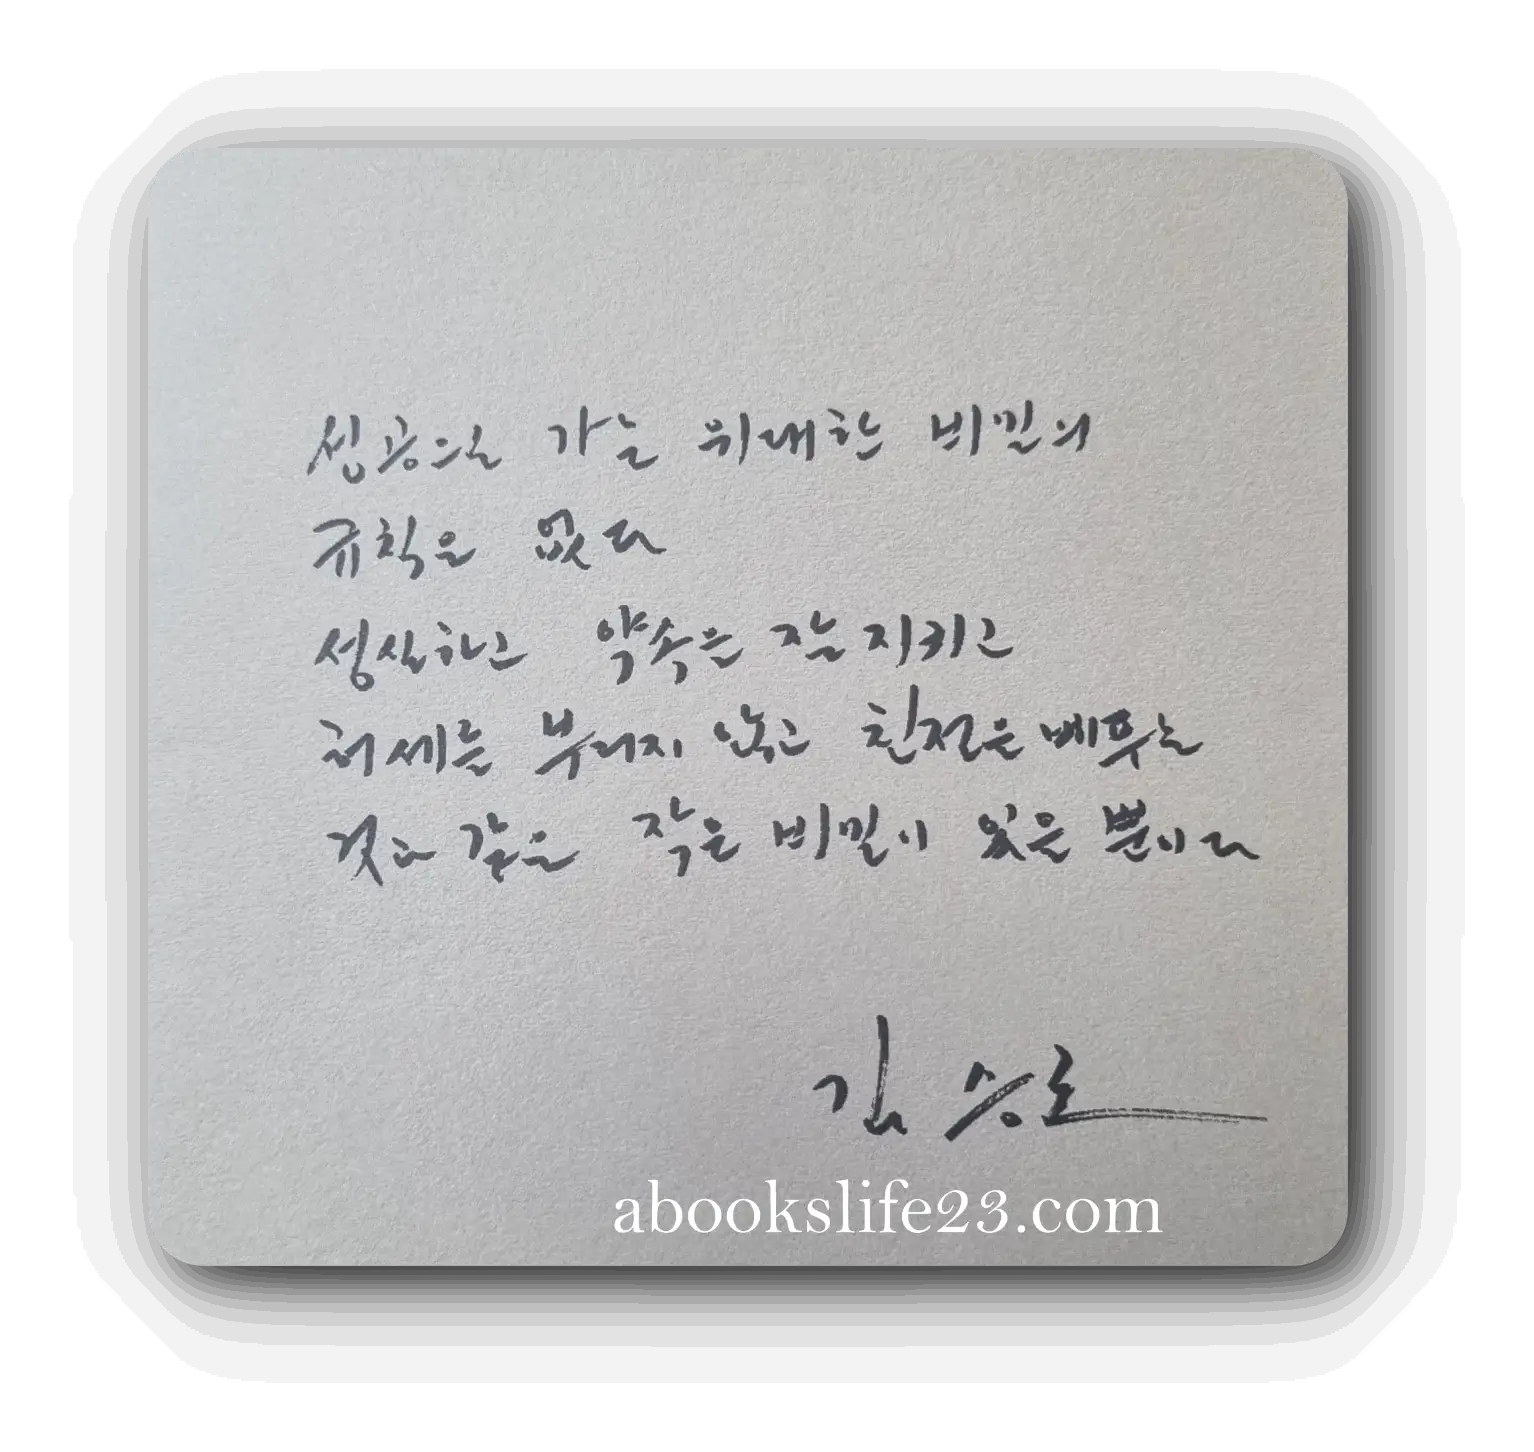 성공으로 가는 위대한 비밀의
규칙은 없다
성실하고 약속은 잘 지키고
허세를 부리지 않고 친절은 베푸는
것과 같은 작은 비밀이 있을 뿐이다
김승호
abookslife23.com